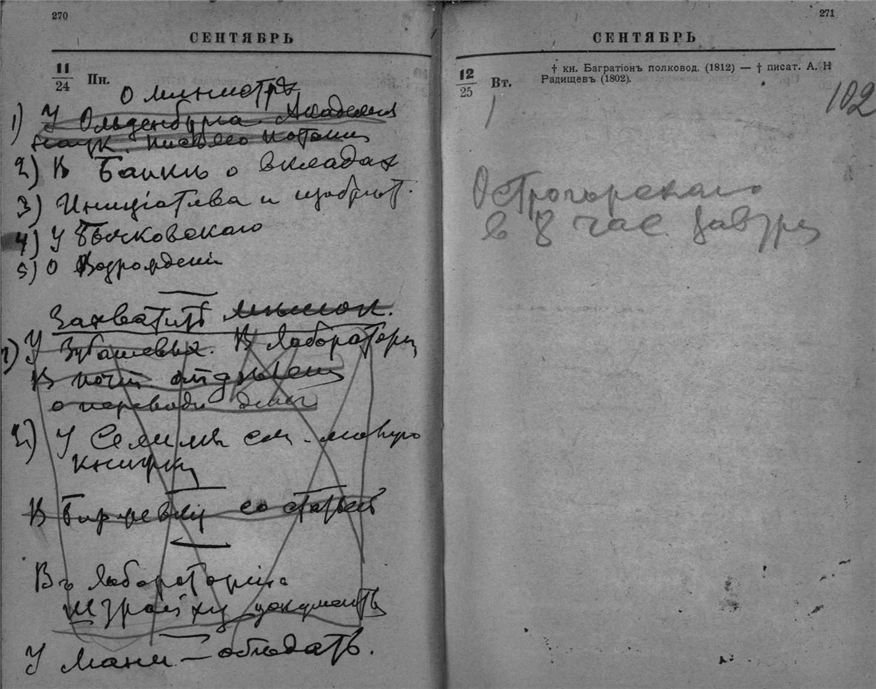 270
СЕНТЯБРЬ
11
24
Пн.
О министрѣ
1) У Ольденбурга Академия
Наук. письмо
2) В Банкъ о вкладах
3) Инициатива и изобрѣт.
4) У Бычковскаго
5) О Возрождении
Захватить
1) У Зубашевых. В Лаборатори
В почт отдѣлен
о переводѣ денег
2) У Селимы
книжку
В Биржевку со статьей
Въ Лабораторию
документъ
У Мани – обѣдать.
271
СЕНТЯБРЬ
12
25
Вт.
† кн. Багратіонъ полковод. (1812) — † писат. А. Н
Радищевъ (1802).
102
Острогорскаго
в 8 час. завтра